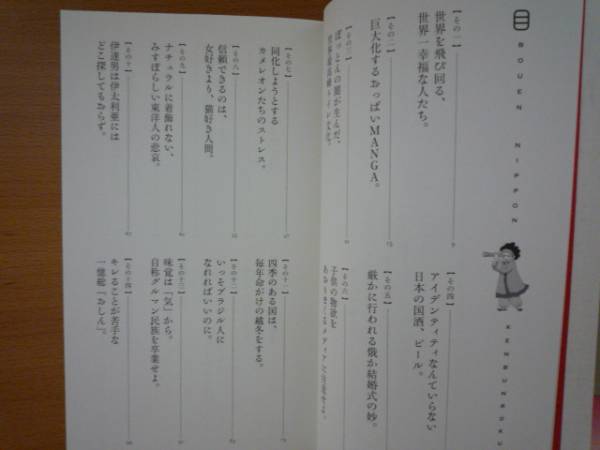 目
BOUKEN NIPPON KENBUNROKU
【その一】
世界を飛び回る、
世界一幸福な人たち。
9
【その二】
巨大化するおっぱいMANGA。
【その三】
ぼっとんの闇が生んだ、
【その四】
アイデンティティなんていらない
日本の国酒、ビール。
【その五】
厳かに行われる俄か結婚式の妙。
【その六】
子供の物欲を
【その七】
同化しようとする
カメレオンたちのストレス。
【その八】
信頼できるのは、
女好きより、猫好き人間。
【その九】
ナチュラルに着飾れない、
みすぼらしい東洋人の悲哀。
【その十】
伊達男は伊太利亜には
どこ探してもおらず。
【その十一】
四季のある国は、
毎年命がけの越冬をする。
【その十二】
いっそブラジル人に
なれればいいのに。
【その十三】
味覚は「気」から。
自称グルマン民族を卒業せよ。
【その十四】
キレることが苦手な
一億総「おしん」。